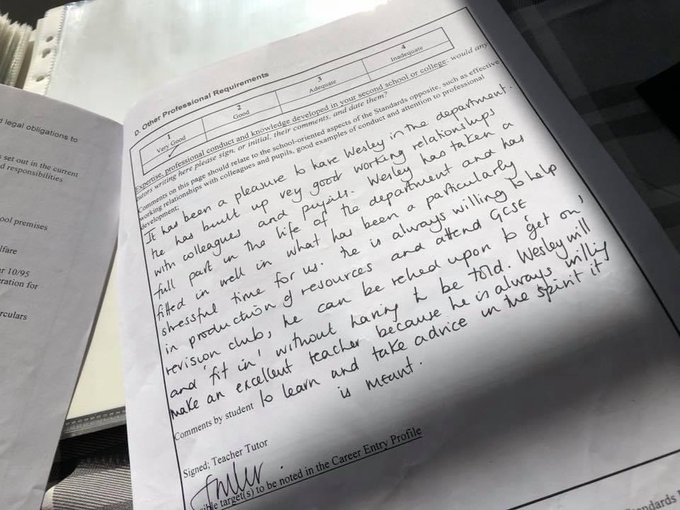 d legal obligations to
s set out in the current
d responsibilities.
ool premises
lfare
r 10/95
ration for
rculars
D. Other Professional Requirements
1 2 3 4
Very Good Good Adequate Inadequate
Expertise, professional conduct and knowledge developed in your second school or college. would any
tutors writing here please sign, or initial, their comments, and date them?
Comments on this page should relate to the school-oriented aspects of the Standards opposite, such as effective
working relationships with colleagues and pupils, good examples of conduct and attention to professional
development;
It has been a pleasure to have Wesley in the department.
he has built up very good working relationships
with colleagues and pupils. Wesley has taken a
full part in the life of the department and has
fitted in well in what has been a particularly
stressful time for us. he is always willing to help
in production of resources and attend GCSE
revision club, he can be relied upon to 'get on'
and 'fit in' without having to be told. Wesley will
make an excellent teacher because he is always willing
Comments by student to learn and take advice in the spirit it
is meant.
Signed; Teacher Tutor
ible target(s) to be noted in the Career Entry Profile
andards